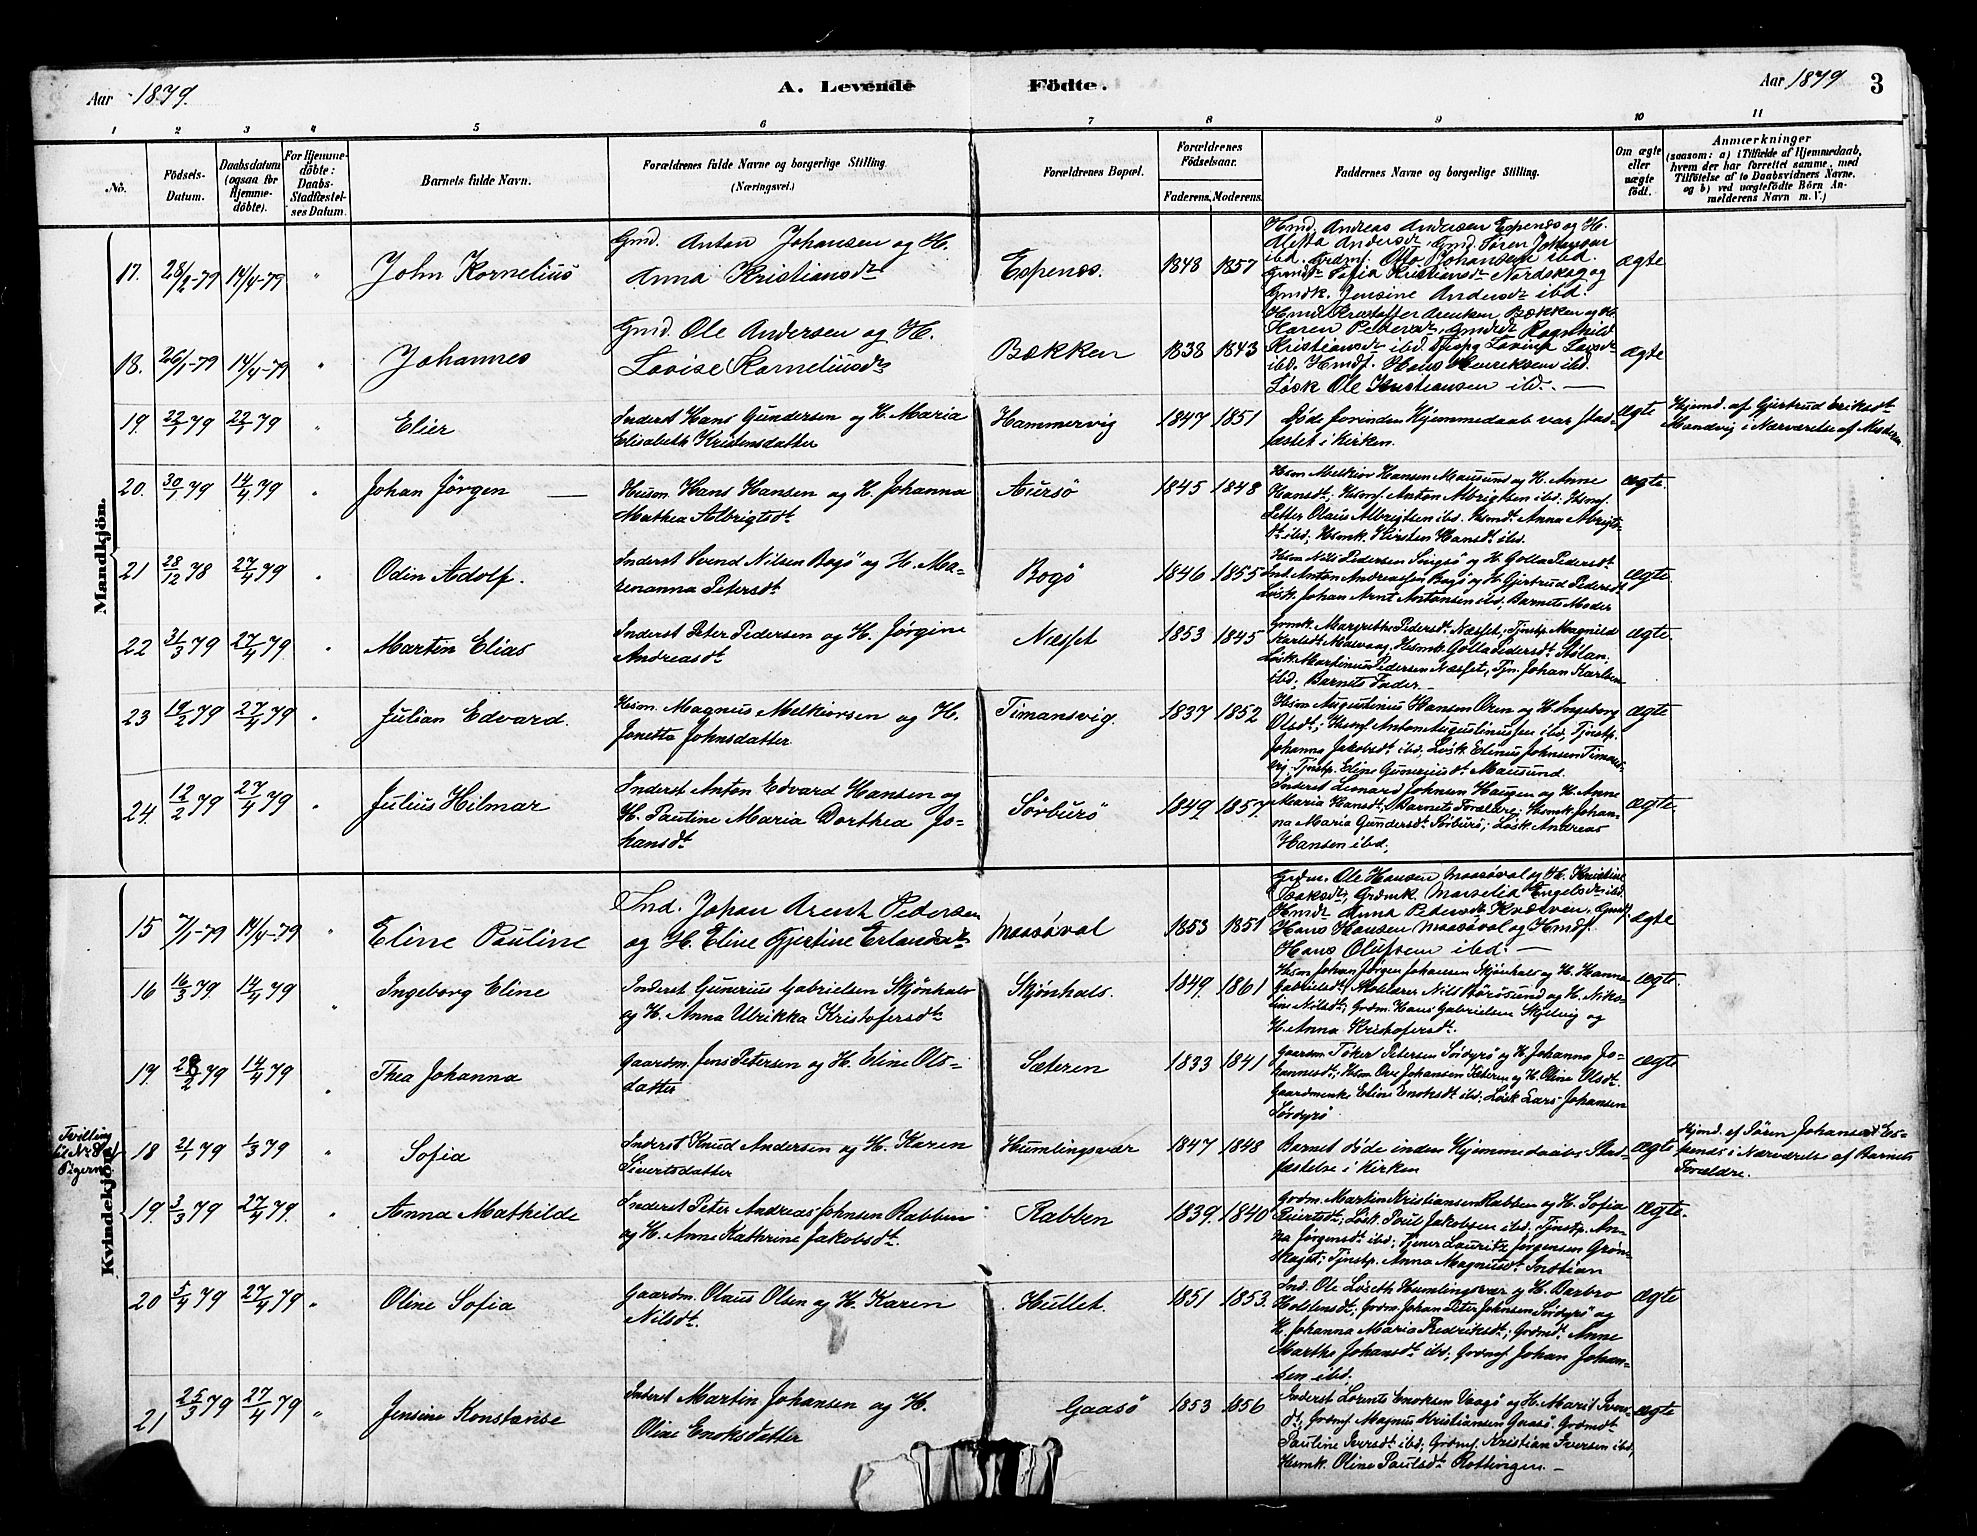 Aar 1879.
A. Levende Födte.
Aar 1879
3
1 2 3 4 5 6 7 8 9 10 11
No.
Födsels-
Datum.
Daabsdatum
(ogsaa for
Hjemme-
döbte).
For Hjemme-
döbte:
Daabs-
Stadfæstel-
ses Datum.
Barnets fulde Navn.
Forældrenes fulde Navne og borgerlige Stilling.
(Næringsvei.)
Forældrenes Bopæl.
Forældrenes
Födselsaar.
Faderens. Moderens.
Faddernes Navne og borgerlige Stilling.
Om ægte
eller
uægte
födt.
Anmærkninger
(saasom: a) i Tilfælde af Hjemmedaab,
hvem der har forrettet samme, med
Tilföielse af to Daabsvidners Navne,
og b) ved uægtefödte Börn An-
melderens Navn m. V.)
Mandkjön.
17. 28/2-79 14/4-79 " John Kornelius
Gmd. Anton Johansen og H.
Anna Kristiansdt
Espenes. 1848 1857
Hmd. Andreas Andersen Espenes og H.
ibd. Otto Johansen ibd.
Gmdt Sofia Kristiansdt Nordskag og
Gmdk. Jensine Andersdt ibd.
ægte
18. 26/1-79 14/4-79 " Johannes
Gmd. Ole Andersen og H.
Lovise Korneliusdt
Bækken 1838 1843
Karen Pedersdt, Gmdt Ragnhild
Kristiansdt ibd.
ibd. Hmdf. Hans Henriksen ibd.
Løsk Ole Kristiansen ibd. —
ægte
19. 22/1 79 22/1 79 " Elier
Inderst Hans Gundersen og H. Maria
Elisabeth Kristensdatter
Hammervig 1847 1851
Døde forinden Hjemmedaab var stad-
fæstet i Kirken.
ægte
Hjemd. af Gjertrud Eriksdt
i Nærværelse af Moderen.
20. 30/1 79 14/4 79 " Johan Jörgen —
Husm. Hans Hansen og H. Johanna
Mathea Albrigtsdt
Aursö 1845 1848
Hsm Melkior Hansen Mausund og H. Anne
Hansdt; Hsmf. Anton Albrigtsen ibd; Hsmf.
Petter Olaus Albrigtsen ibd. Hsmdt Anna Albrigts-
dt ibd; Hsmk. Kirsten Hansdt ibd.
ægte
21 28/12 78 27/4 79 " Odin Adolf.
Inderst Svend Nilsen Bogö og H. Ma-
renanna Petersdt
Bogö 1846 1855
Hsm Nils Pedersen og H. Golla Pedersdt
Ind. Anton Andreassen Bogö og H. Gjertrud Pedersdt
Løsk. Johan Arnt Antonsen ibd; Barnets Moder
ægte
22 31/3 79 27/4 79 " Martin Elias
Inderst Peter Pedersen og H. Jörgine
Andreasdt
Næsset 1853 1845
Grmk. Margrethe Pedersdt Næsset; Tjnstp. Magnild
Karlsdt Hsmk. Golla Pedersdt
Løsk. Martinus Pedersen Næsset, Tjn. Johan Karlsen
ibd; Barnets Fader. —
ægte.
23 14/2 79 27/4 79 " Julian Edvard.
Hsm. Magnus Melkiorsen og H.
Jonetta Johnsdatter
Timansvig. 1837 1852
Hsm Augustinius Hansen Oren og H. Ingeborg
Olsdt; Hsmf. Anton Augustiniussen ibd; Tjnstp.
Johanna Jakobsdt ibd; Løsk. Elinus Johnsen Timans-
vig; Tjnstp. Eline Guneriusdt Mausund.
ægte
24. 12/2 79 27/4 79 " Julius Hilmar
Inderst Anton Edvard Hansen og
H. Pauline Maria Dorthea Jo-
hansdt
Sörburö 1849 1857.
Inderst Leonard Johnsen Haugen og H. Anne
Maria Hansdt; Barnets Forældre; Hsmk. Johan-
na Maria Gundersdt Sörburö; Løsk. Andreas
Hansen ibd.
ægte.
Kvindekjön.
15 7/1-79 14/4-79 " Eline Pauline
Ind. Johan Arent Pedersen
og H. Eline Gjertine Erlandsdt
Maasöval 1853 1851
Grdm. Ole Hansen Maasöval og H. Kristine
Isaksdt; Grdmk. Marselia Engelsdt ibd.
Hmdt Anna Petersdt Kværven, Gmdf.
Hans Hansen Maasöval og Hmdf.
Hans Olufsen ibd. —
ægte
16 16/3 79. 14/4 79 " Ingeborg Eline
Inderst Gunerius Gabrielsen Skjönhals
og H. Anna Ulrikka Kristofersdt
Skjönhals. 1849. 1861
Hsm Johan Jörgen Johansen Skjönhals og H. Hanna
Gabrielsdt; Nils Störösund og H. Niko-
line Nilsdt; Grdm. Hans Gabrielsen Skjelvig og
H. Anna Kristofersdt.
ægte.
17. 28/2 79 14/4 79 " Thea Johanna
Gaardm. Jens Petersen og H. Eline Ols-
datter
Sæteren 1833 1841
Gaardm Töker Petersen Sördyrö og H. Johanna Jo-
hannesdt; Hsm Ove Johansen Sæteren og H. Oline Olsdt
Gaardmenke Eline Enoksdt ibd; Løsk Lars Johansen
Sördyrö
ægte
Tvilling
til No 8 af
Pigerne
18 21/1 79 1/3 79 " Sofia
Inderst Knud Andersen og H. Karen
Sivertsdatter
Humlingsvær 1847 1848
Barnet döde inden Hjemmedaabs Stad-
fæstelse i Kirken
ægte
Hjemd. af Sören Johansen Es-
penes i Nærværelse af Barnets
Forældre.
19. 3/3 79 27/4 79. " Anna Mathilde
Inderst Peter Andreas Johnsen Rabben
og H. Anne Kathrine Jakobsdt.
Rabben 1839. 1840
Grdm. Martin Kristiansen Rabben og H. Sofia
Løsk. Poul Jakobsen ibd. Tjnstp. An-
na Jörgensdt ibd; Tjener Lauritz Jörgensen Gröm-
skaget; Tjnstp. Anna Magnusdt
ægte.
20 5/4 79 27/4 79 " Oline Sofia
Gaardm. Olaus Olsen og H. Karen
Nilsdt.
Hullet. 1851 1853
Ind. Ole Humlingsvær og H. Barbro
Holstensdt; Grdm. Johan Peter Johnsen Sördyrö og
H. Johanna Maria Fredriksdt; Grdmdt. Anne
Marthe Johansdt ibd; Grdmf. Johan Johan-
sen ibd.
ægte
21 25/3 79 27/4 79 " Jensine Konstanse
Inderst Martin Johansen og H.
Oline Enoksdatter
Gaasö 1853 1856
Inderst Lorents Enoksen Vaagö og H. Marit Ivers-
dt; Grdmf. Magnus Kristiansen Gaasö. Grdmdt
Pauline Iversdt ibd; Grdmf. Kristian Iversen ibd;
Hsmk. Oline Paulsdt Rottingen —
ægte